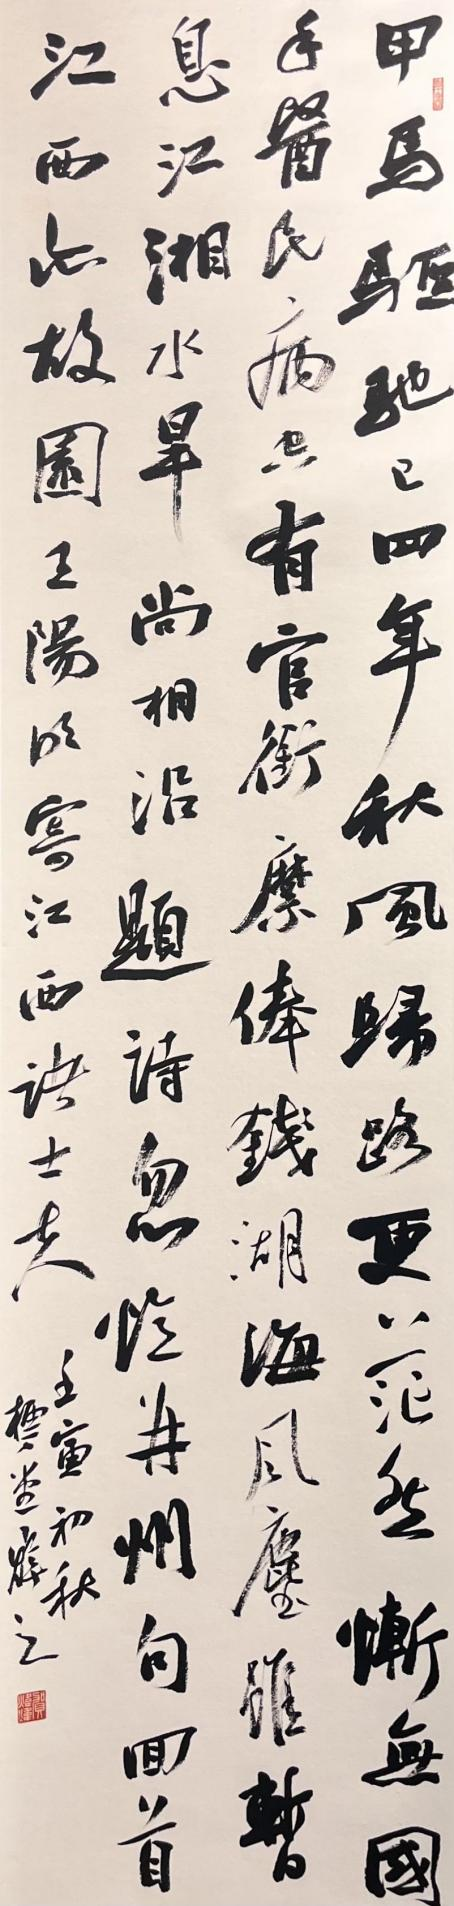 甲馬驅馳已四年秋風歸路更茫然慚無國
手醫民病空有官銜縻俸錢湖海風塵雖暫
息江湘水旱尚相沿題詩忽憶并州句回首
江西亦故園王陽明寄江西諸士夫
壬寅初秋
堂之